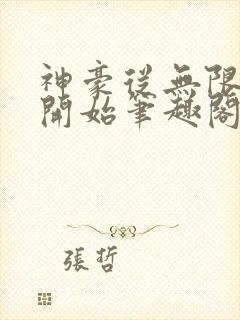 神豪從無限
開始筆趣閣
張哲